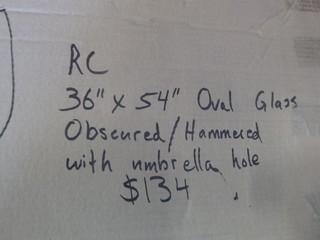 RC
36" x 54" Oval Glass
Obscured/Hammered
with umbrella hole
$134